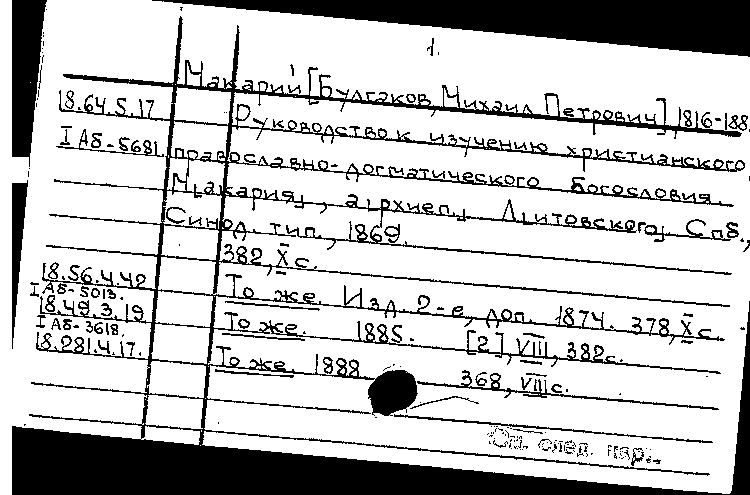 1.
Макарий [Булгаков, Михаил Петрович], 1816-188
18.64.5.17 Руководство к изучению христианского,
I АБ-5681 православно-догматического богословия.
М[акария], а[рхиеп.] Л[итовского]. Спб.,
Синод. тип., 1869.
382, X с.
18.56.4.42 То же. Изд. 2-е, доп. 1874. 378, X с.
I АБ-5013.
18.49.3.19 То же. 1885. [2], VIII, 382с.
I АБ-3618.
18.281.4.17. То же. 1888. 368, VIII с.
См. след. кар..